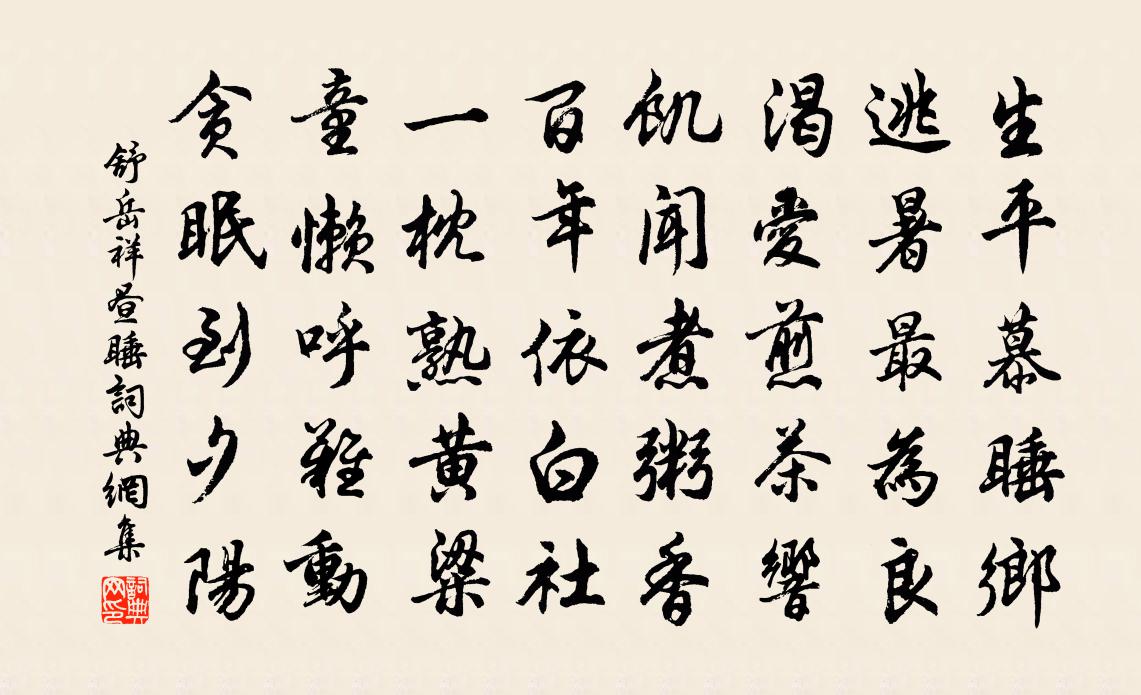 生平慕睡鄉
逃暑最為良
渴愛煎茶響
飢聞煮粥香
百年依白社
一枕熟黃粱
童懶呼難動
貪眠到夕陽
舒岳祥晝睡詞典網集
詞典網印